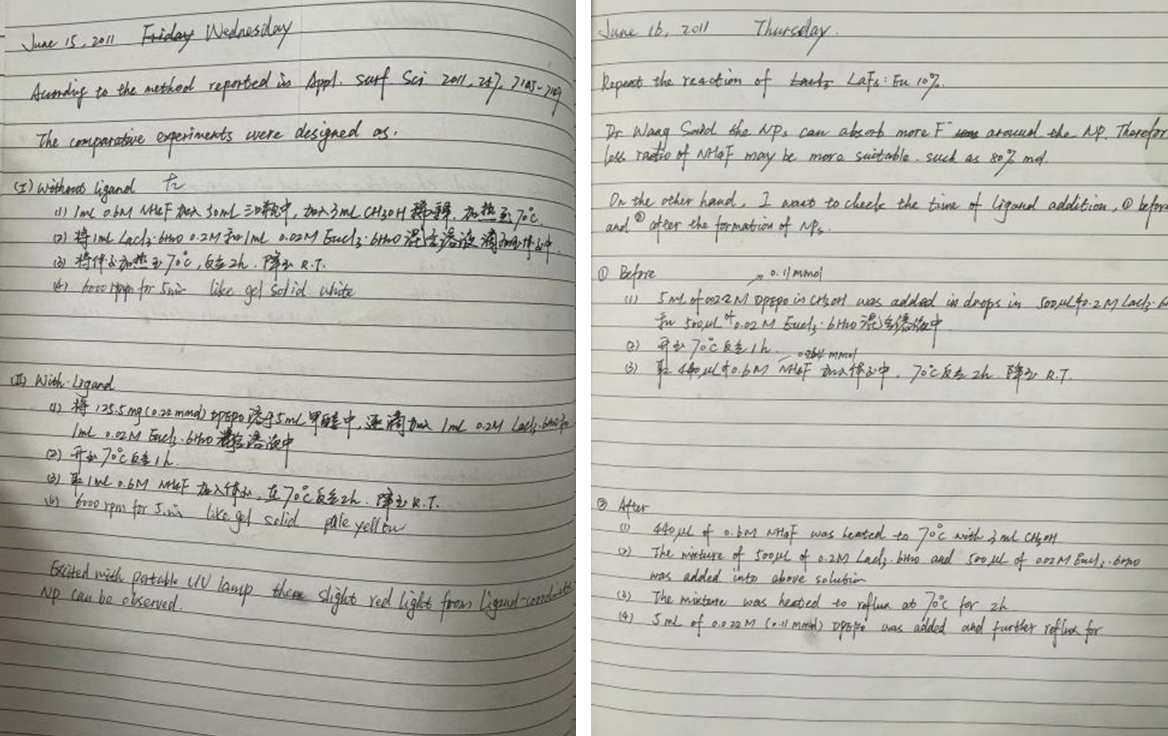 June 15, 2011 Friday Wednesday
According to the method reported in Appl. Surf Sci 2011, 257, 7165-7169
The comparative experiments were designed as.
(I) Without ligand
(1) 1mL 0.6M NH4F 加入 50mL 三口瓶中, 加入 3mL CH3OH 稀释, 加热至 70℃.
(2) 将 1mL LaCl3·6H2O 0.2M 和 1mL 0.02M EuCl3·6H2O 混合溶液滴加到体系中.
(3) 将体系加热至 70℃, 反应 2h. 降至 R.T.
(4) 6000 rpm for 5min like gel solid white
(II) With Ligand
(1) 将 125.5mg (0.22 mmol) DPEPO 溶于 5mL 甲醇中, 逐滴加入 1mL 0.2M LaCl3·6H2O 和
1mL 0.02M EuCl3·6H2O 混合溶液中
(2) 升至 70℃ 反应 1h.
(3) 取 1mL 0.6M NH4F 加入体系, 在 70℃ 反应 2h. 降至 R.T.
(4) 6000 rpm for 5min like gel solid pale yellow
Excited with portable UV lamp slight red light from ligand-coordinate
NP can be observed.
June 16, 2011 Thursday.
Repeat the reaction of LaCl3 LaF3: Eu 10%.
Dr Wang Said the NPs can absorb more F- around the NP. Therefor
less ratio of NH4F may be more suitable. such as 80% mol.
On the other hand, I want to check the time of ligand addition, ① before
and ② after the formation of NPs.
① Before 0.11 mmol
(1) 5 mL of 0.022 M DPEPO in CH3OH was added in drops in 500μL of 0.2M LaCl3·6
和 500μL of 0.02 M EuCl3·6H2O 混合溶液中
(2) 升至 70℃ 反应 1h. 0.264 mmol
(3) 取 440μL of 0.6M NH4F 加入体系中. 70℃ 反应 2h. 降至 R.T.
② After
(1) 440μL of 0.6M NH4F was heated to 70℃ with 3 mL CH3OH
(2) The mixture of 500μL of 0.2M LaCl3·6H2O and 500μL of 0.02M EuCl3·6H2O
was added into above solution
(3) The mixture was heated to reflux at 70℃ for 2h
(4) 5 mL of 0.022M (0.11 mmol) DPEPO was added and further reflux for